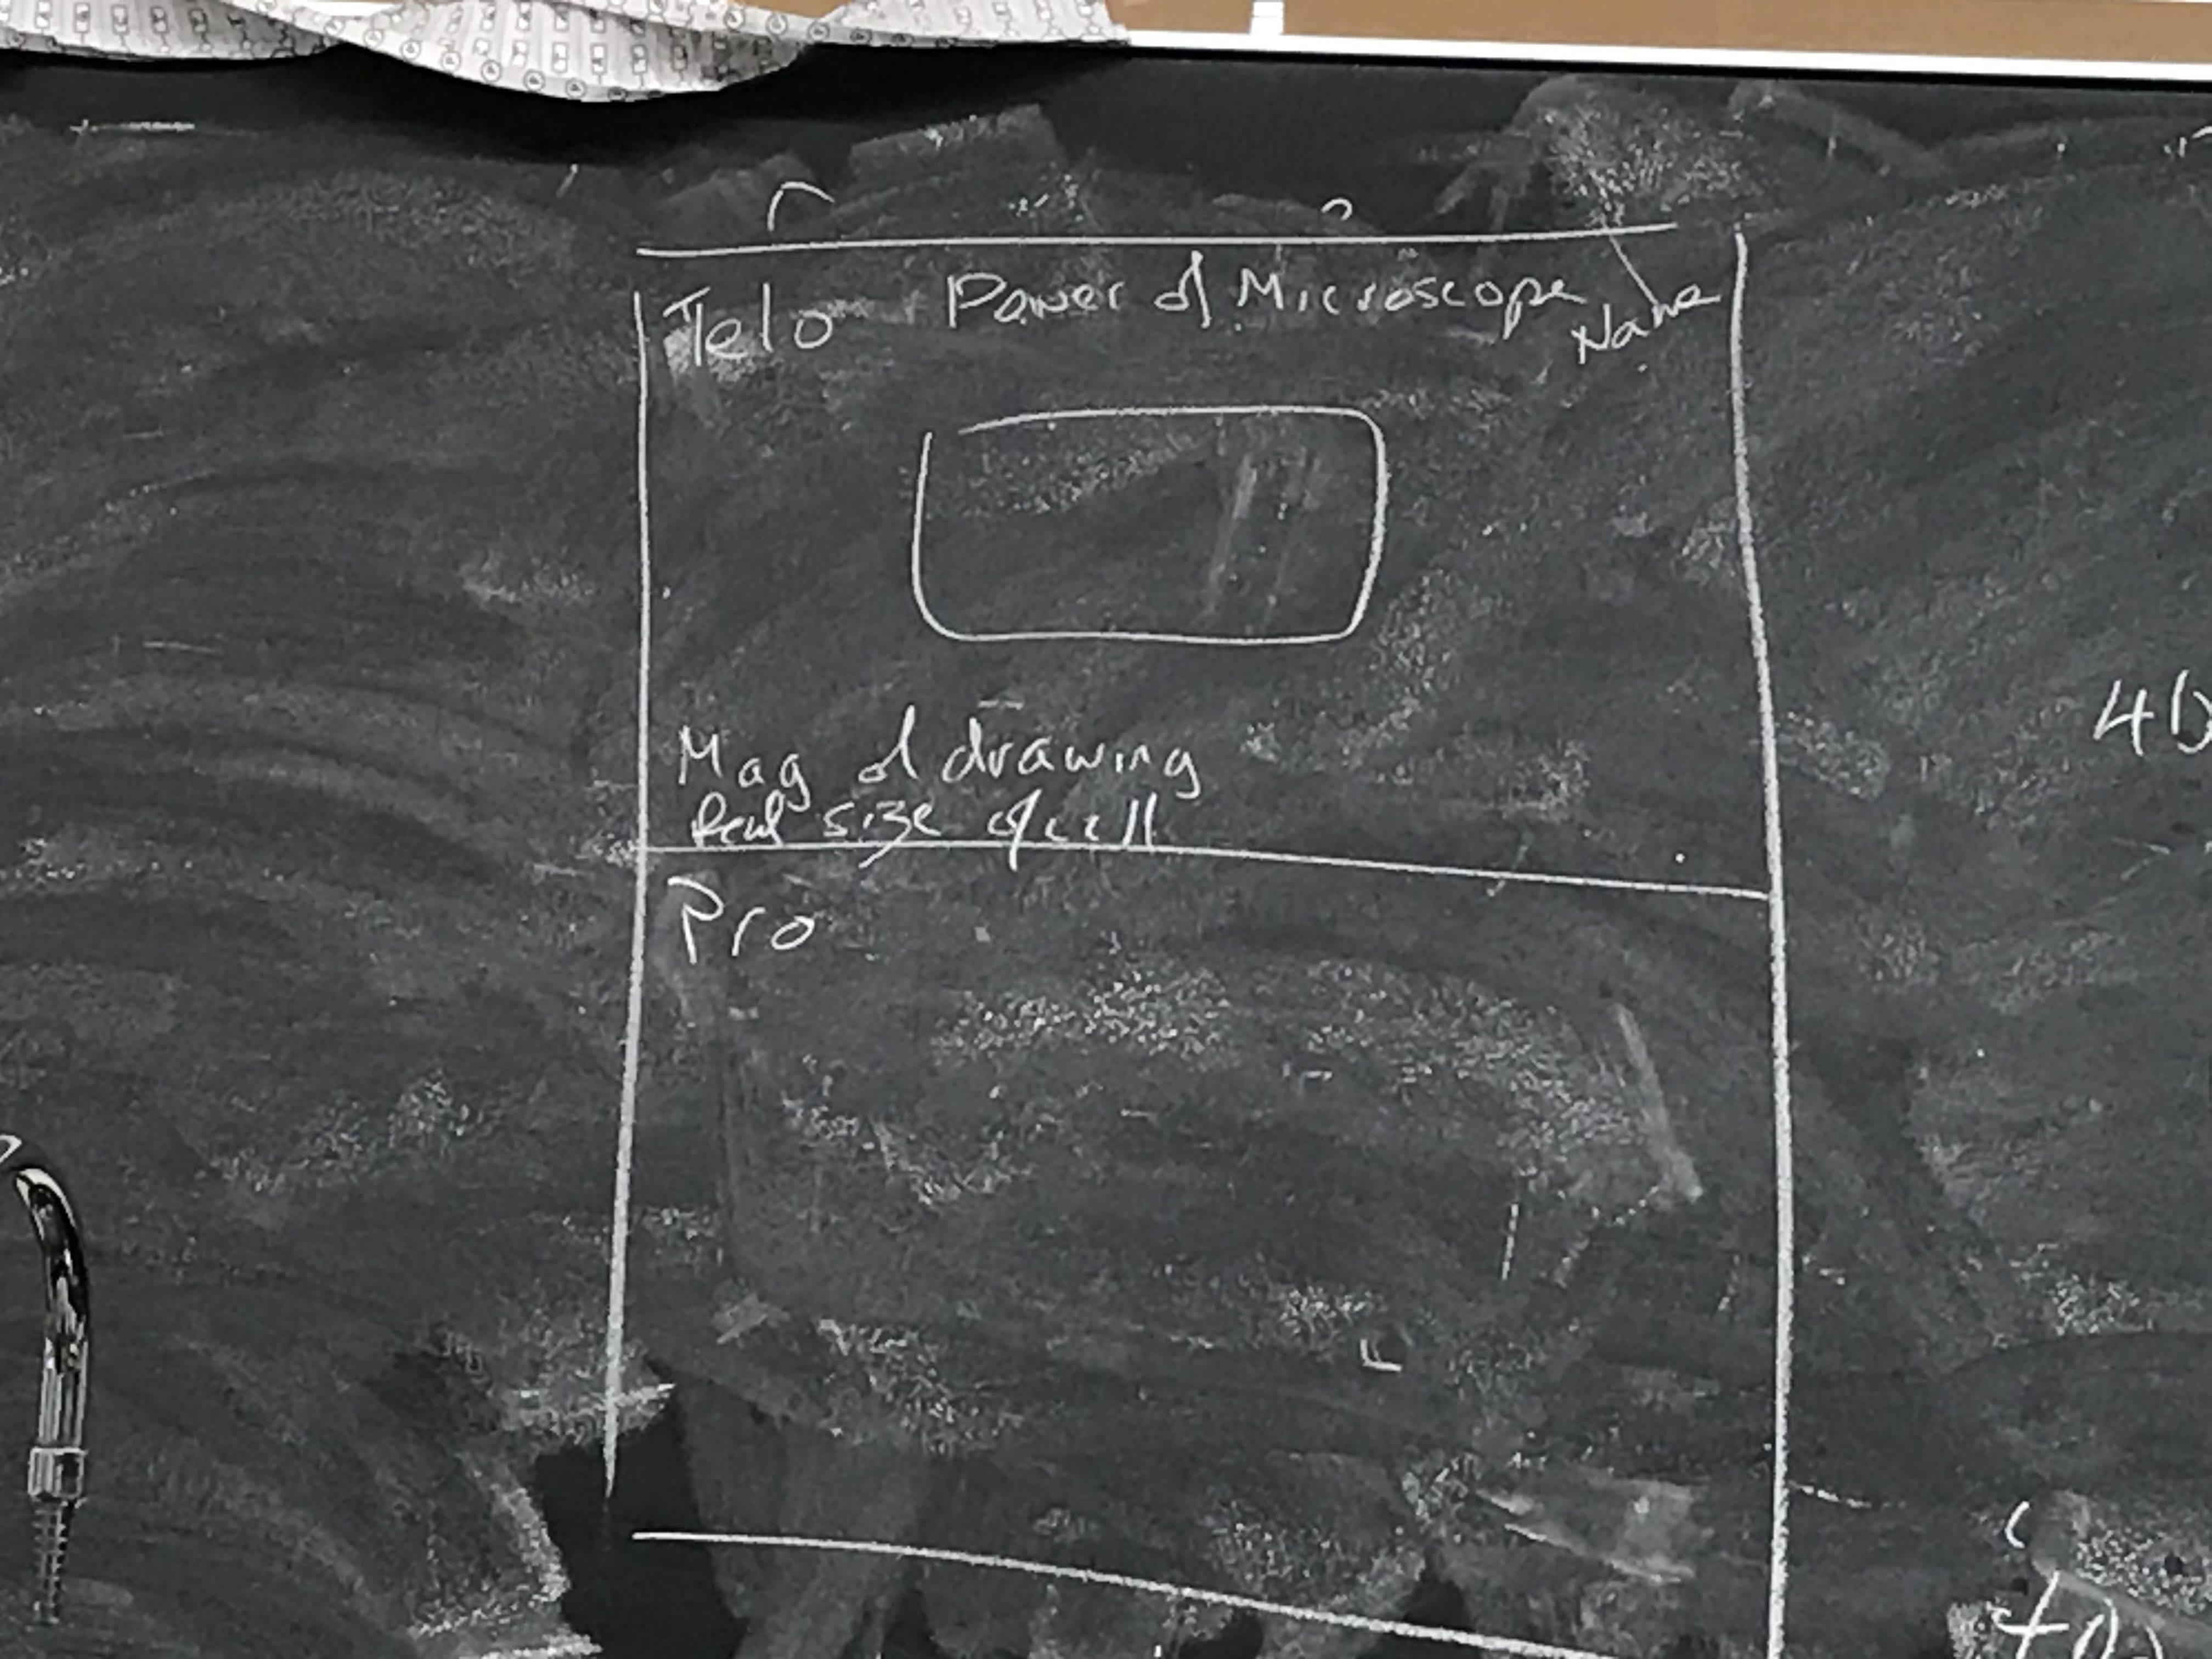 Telo Power of Microscope Name
Mag of drawing
Real size of cell
Pro